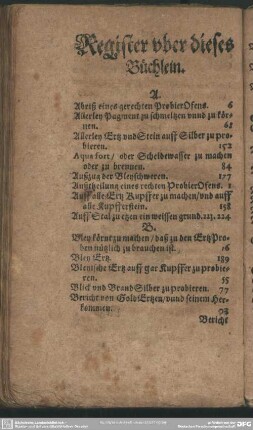 Register vber dieses
Büchlein.
A.
Abriß eines gerechten ProbierOfens. 6
Allerley Pagment zu schmeltzen vnnd zu kör-
nen. 61
Allerley Ertz vnd Stein auff Silber zu pro-
bieren. 152
Aqua fort / oder Scheidewasser zu machen
oder zu brennen. 84
Außzug der Bleyschweren. 177
Außtheilung eines rechten ProbierOfens. 1
Auff alle Ertz Kupffer zu machen / vnd auff
alle Kupfferstein. 138
Auff Stal zu etzen ein weissen grund. 223. 224
B.
Bley körnt zu machen / daß zu den Ertz Pro-
ben nützlich zu brauchen ist. 16
Bley Ertz. 189
Blenische Ertz auff gar Kupffer zu probie-
ren. 55
Blick vnd Brand Silber zu probieren. 77
Bericht von Gold Ertzen / vnnd seinem Her-
kommen. 93
Bericht